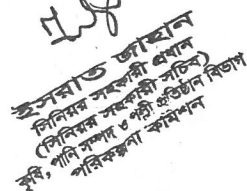 ইসরাত জাহান
সিনিয়র সহকারী প্রধান
(সিনিয়র সহকারী সচিব)
কৃষি, পানি সম্পদ ও পল্লী প্রতিষ্ঠান বিভাগ
পরিকল্পনা কমিশন